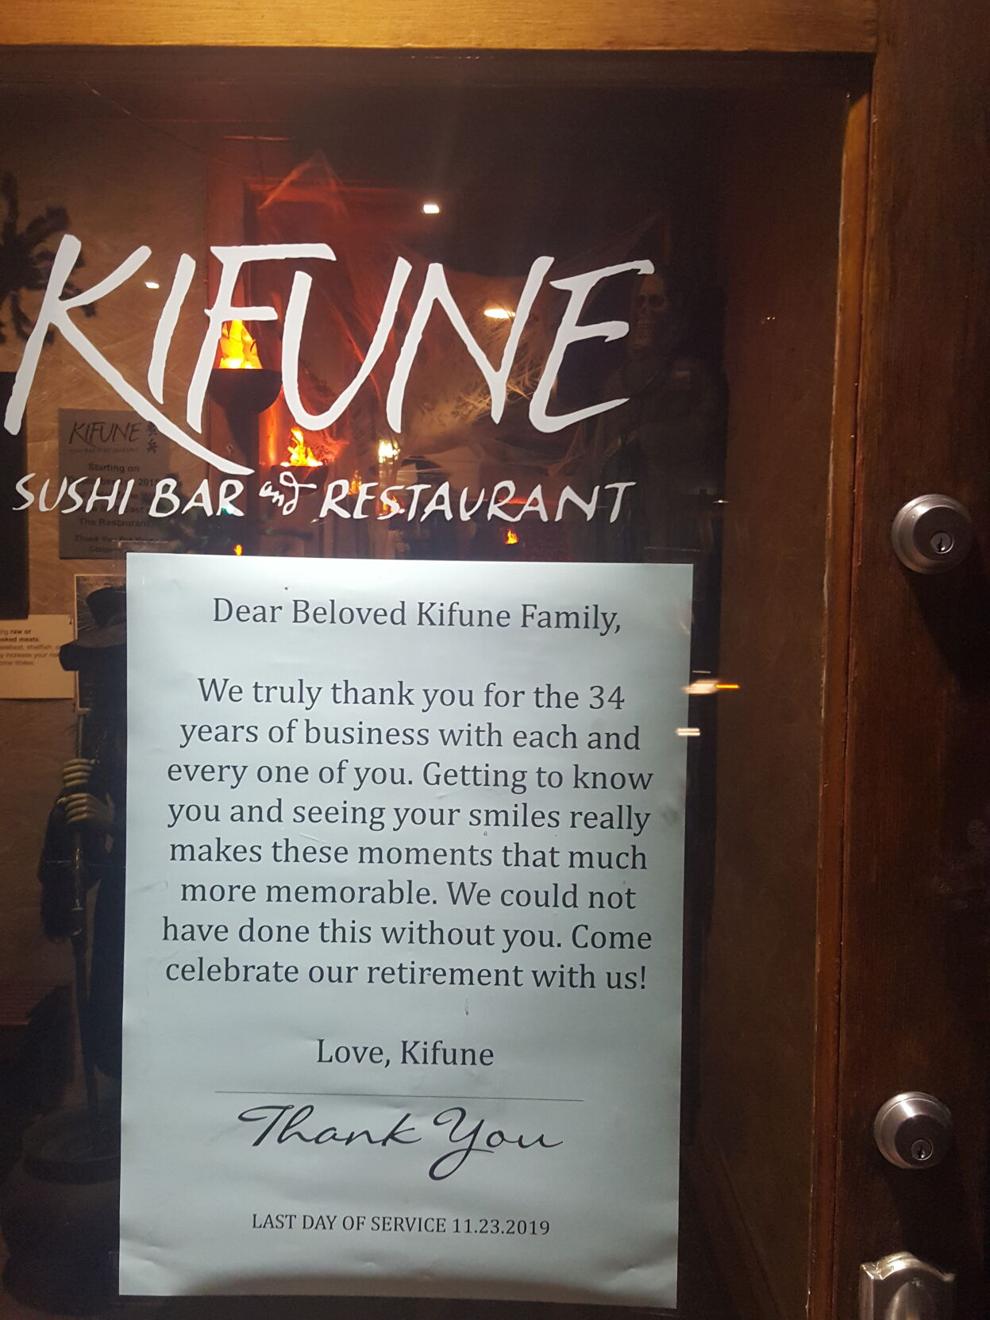 KIFUNE
SUSHI BAR and RESTAURANT
KIFUNE
Starting on
The Restaurant
raw or
cooked meats.
Dear Beloved Kifune Family,
We truly thank you for the 34
years of business with each and
every one of you. Getting to know
you and seeing your smiles really
makes these moments that much
more memorable. We could not
have done this without you. Come
celebrate our retirement with us!
Love, Kifune
Thank You
LAST DAY OF SERVICE 11.23.2019